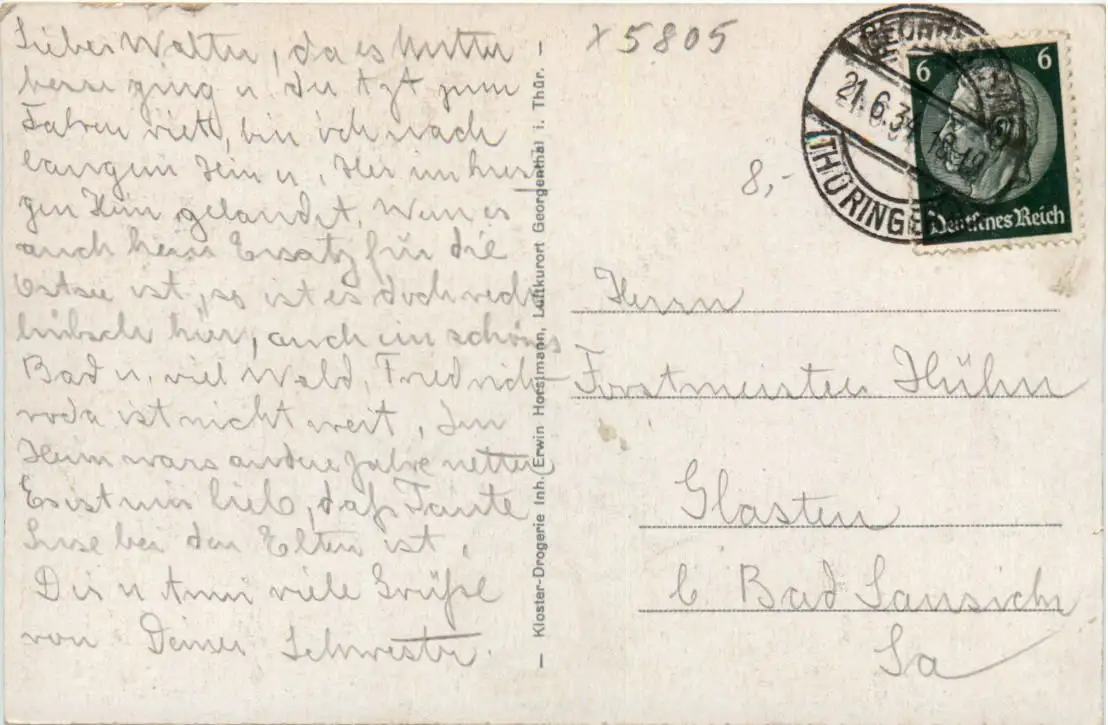 Lieber Walter, da es Mutter
besser ging u. der Arzt zum
Fahren riet, bin ich nach
langem Hin u. Her im hiesi-
gen Heim gelandet. Wenn es
auch kein Ersatz für die
Ostsee ist, so ist es doch recht
hübsch hier, auch ein schönes
Bad u. viel Wald, Friedrich-
roda ist nicht weit, Im
Heim wars andere Jahre netter
Es ist mir lieb, daß Tante
bei den Eltern ist,
Dir u Anni viele Grüße
von Deiner Schwester.
— Kloster-Drogerie Inh. Erwin Horstmann, Luftkurort Georgenthal i. Thür.
x 5805
8,-
21.6.34
(THÜRINGEN)
6 6
Deutsches Reich
Herrn
Forstmeister Hühn
Glasten
b Bad Lausick
Sa